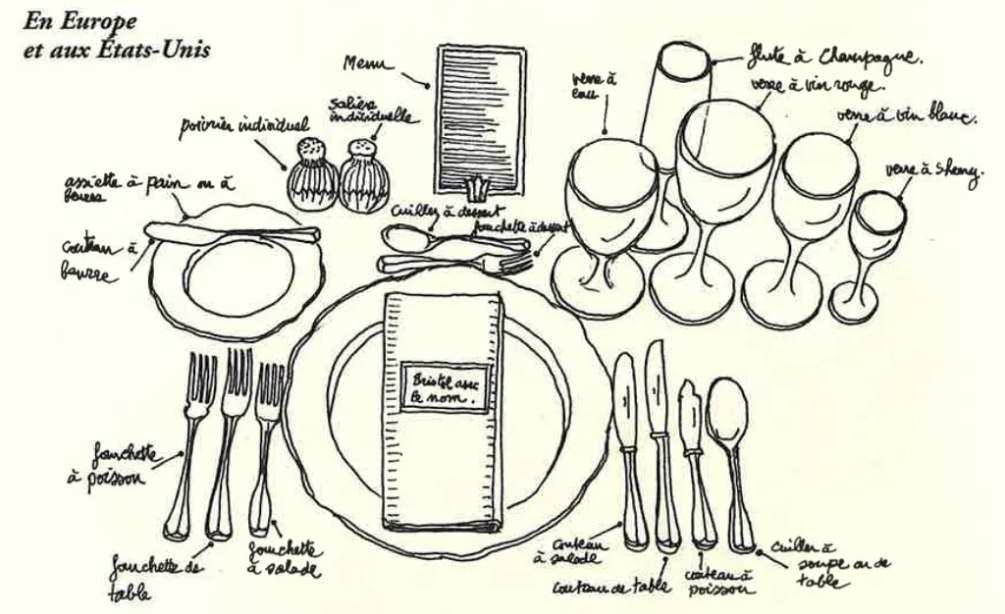 En Europe
et aux États-Unis
Menu
salière
individuelle
poivrier individuel
verre à
eau
flute à Champagne.
verre à vin rouge.
verre à vin blanc.
verre à Sherry.
assiette à pain ou à
beurre
couteau à
beurre
cuiller à dessert
fourchette à dessert
Bristol avec
le nom.
fourchette
à poisson
fourchette de
table
fourchette
à salade
couteau
à salade
couteau de table
couteau à
poisson
cuiller à
soupe ou de
table